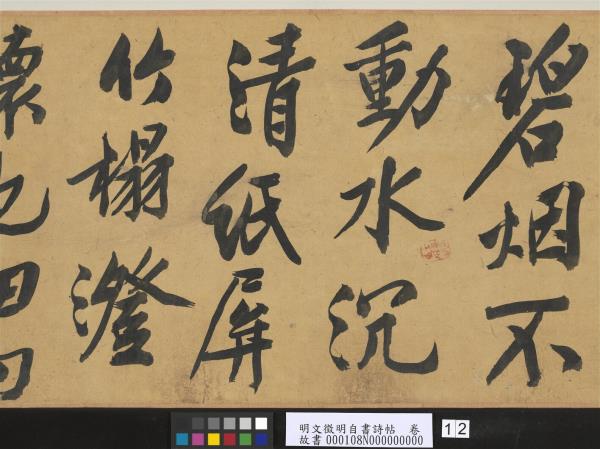 碧烟不
動水沉
清紙屏
竹榻澄
懷
明文徵明自書詩帖 卷
故書000108N000000000
12